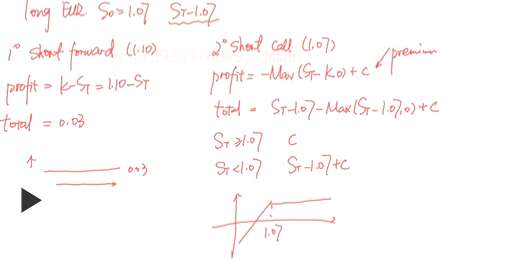 long EUR. S₀=1.07 Sт-1.07
1° Short forward (1.10)
profit = K-Sт = 1.10-Sт
total = 0.03
0.03
2° Short call (1.07)
premium
profit = -Max(Sт-K,0)+c
total = Sт-1.07-Max(Sт-1.07,0)+c
Sт≥1.07 C
Sт<1.07 Sт-1.07+C
1.07